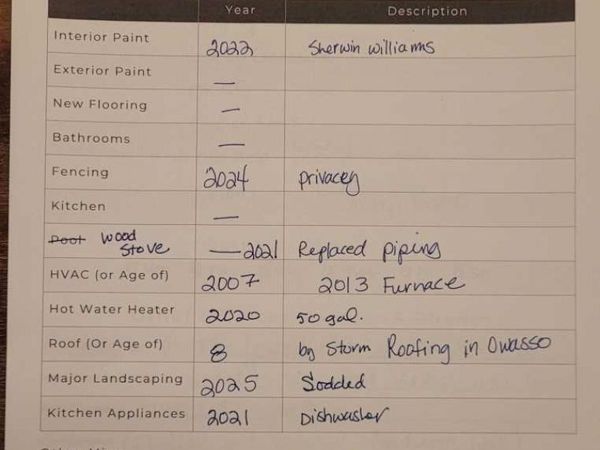 Year Description
Interior Paint 2022 Sherwin williams
Exterior Paint —
New Flooring —
Bathrooms —
Fencing 2024 privacey
Kitchen —
Pool wood stove — 2021 Replaced piping
HVAC (or Age of) 2007 2013 Furnace
Hot Water Heater 2020 50 gal.
Roof (Or Age of) 8 by Storm Roofing in Owasso
Major Landscaping 2025 Sodded
Kitchen Appliances 2021 Dishwasher